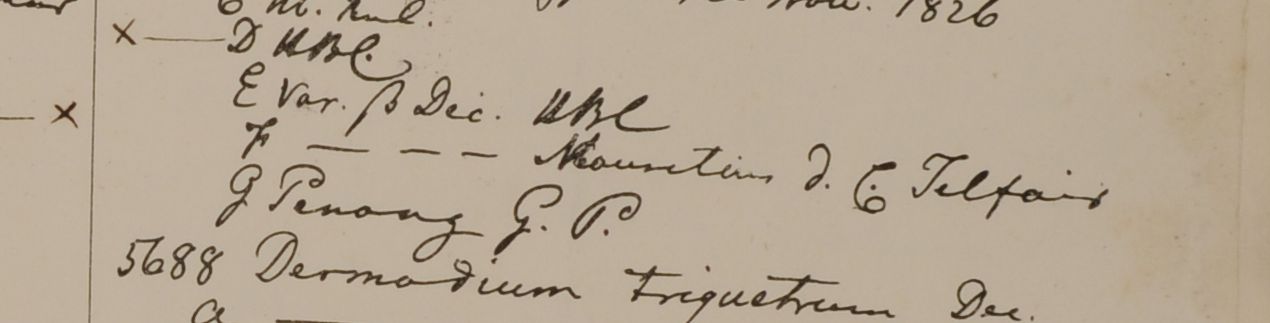 Nov. 1826
D HBC.
E Var. β Dec. HBC
F — — — — Mauritius d. C. Telfair
G Penang G. P.
5688 Dermodium triquetrum Dec.
a